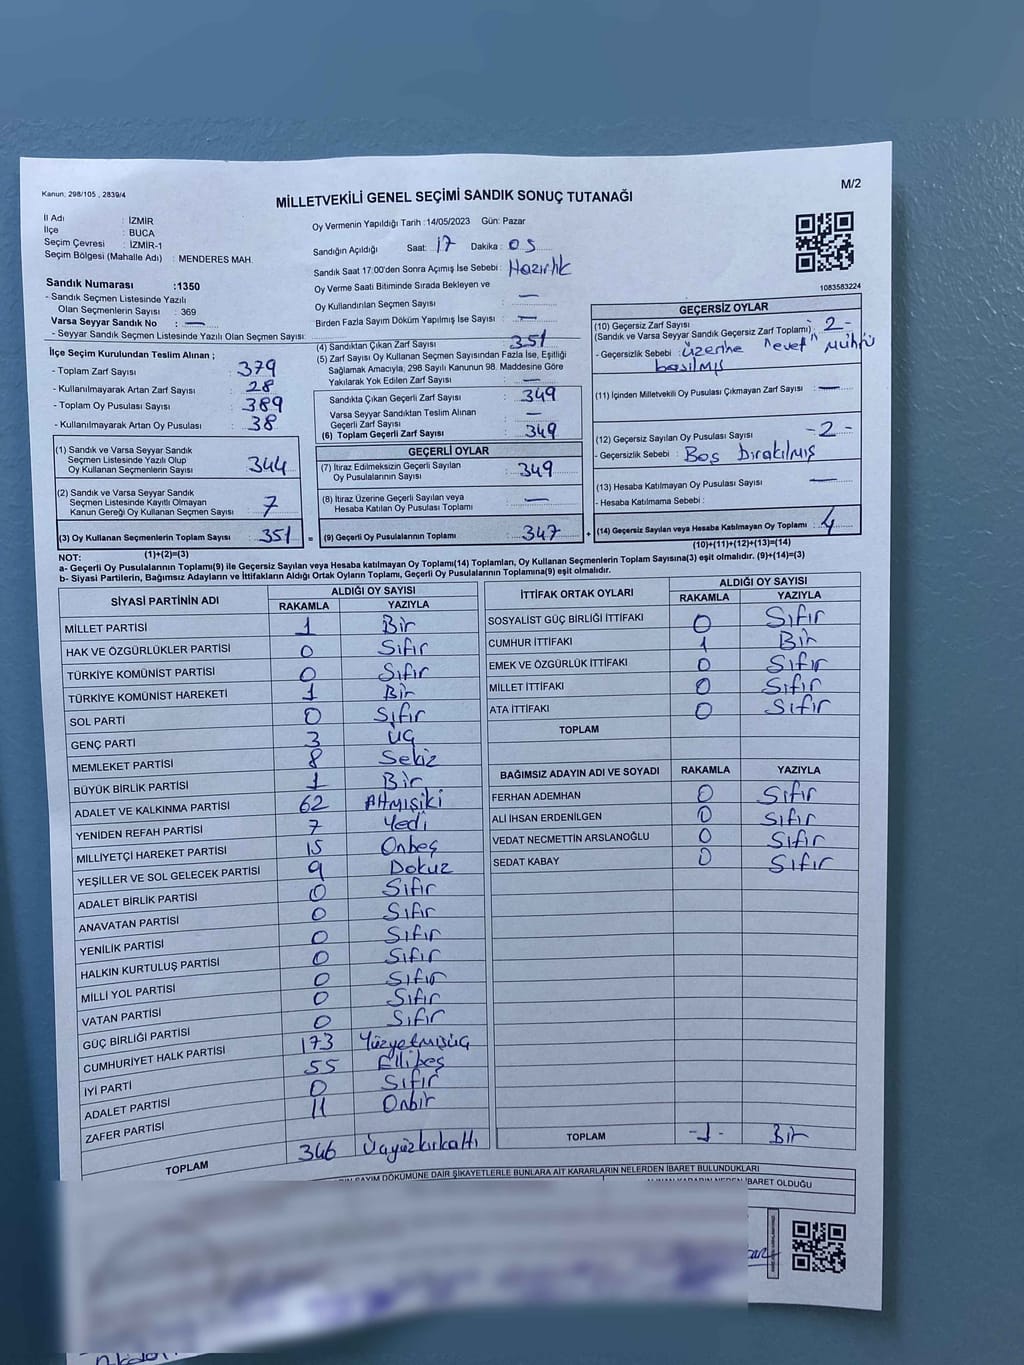 Kanun, 298/105 , 2839/4
MİLLETVEKİLİ GENEL SEÇİMİ SANDIK SONUÇ TUTANAĞI
M/2
İl Adı : İZMİR
İlçe : BUCA
Seçim Çevresi : İZMİR-1
Seçim Bölgesi (Mahalle Adı) : MENDERES MAH.
Sandık Numarası :1350
- Sandık Seçmen Listesinde Yazılı
Olan Seçmenlerin Sayısı : 369
Varsa Seyyar Sandık No : —
- Seyyar Sandık Seçmen Listesinde Yazılı Olan Seçmen Sayısı:
Oy Vermenin Yapıldığı Tarih : 14/05/2023 Gün: Pazar
Sandığın Açıldığı Saat: 17 Dakika : 05
Sandık Saat 17:00'den Sonra Açımış İse Sebebi : Hazırlık
Oy Verme Saati Bitiminde Sırada Bekleyen ve
Oy Kullandırılan Seçmen Sayısı : —
Birden Fazla Sayım Döküm Yapılmış İse Sayısı : —
1083583224
İlçe Seçim Kurulundan Teslim Alınan ;
- Toplam Zarf Sayısı : 379
- Kullanılmayarak Artan Zarf Sayısı : 28
- Toplam Oy Pusulası Sayısı : 389
- Kullanılmayarak Artan Oy Pusulası : 38
(1) Sandık ve Varsa Seyyar Sandık
Seçmen Listesinde Yazılı Olup
Oy Kullanan Seçmenlerin Sayısı 344
(2) Sandık ve Varsa Seyyar Sandık
Seçmen Listesinde Kayıtlı Olmayan
Kanun Gereği Oy Kullanan Seçmen Sayısı 7
(3) Oy Kullanan Seçmenlerin Toplam Sayısı : 351
(1)+(2)=(3)
(4) Sandıktan Çıkan Zarf Sayısı : 351
(5) Zarf Sayısı Oy Kullanan Seçmen Sayısından Fazla İse, Eşitliği
Sağlamak Amacıyla, 298 Sayılı Kanunun 98. Maddesine Göre
Yakılarak Yok Edilen Zarf Sayısı : —
Sandıkta Çıkan Geçerli Zarf Sayısı : 349
Varsa Seyyar Sandıktan Teslim Alınan
Geçerli Zarf Sayısı : —
(6) Toplam Geçerli Zarf Sayısı : 349
GEÇERLİ OYLAR
(7) İtiraz Edilmeksizin Geçerli Sayılan
Oy Pusulalarının Sayısı : 349
(8) İtiraz Üzerine Geçerli Sayılan veya
Hesaba Katılan Oy Pusulası Toplamı : —
= (9) Geçerli Oy Pusulalarının Toplamı : 347
GEÇERSİZ OYLAR
(10) Geçersiz Zarf Sayısı
(Sandık ve Varsa Seyyar Sandık Geçersiz Zarf Toplamı) : -2-
- Geçersizlik Sebebi : üzerine "evet" mührü
basılmış
(11) İçinden Milletvekili Oy Pusulası Çıkmayan Zarf Sayısı : —
(12) Geçersiz Sayılan Oy Pusulası Sayısı : -2-
- Geçersizlik Sebebi : Boş bırakılmış
(13) Hesaba Katılmayan Oy Pusulası Sayısı : —
- Hesaba Katılmama Sebebi :
+ (14) Geçersiz Sayılan veya Hesaba Katılmayan Oy Toplamı : 4
(10)+(11)+(12)+(13)=(14)
NOT:
a- Geçerli Oy Pusulalarının Toplamı(9) ile Geçersiz Sayılan veya Hesaba katılmayan Oy Toplamı(14) Toplamları, Oy Kullanan Seçmenlerin Toplam Sayısına(3) eşit olmalıdır. (9)+(14)=(3)
b- Siyasi Partilerin, Bağımsız Adayların ve İttifakların Aldığı Ortak Oyların Toplamı, Geçerli Oy Pusulalarının Toplamına(9) eşit olmalıdır.
SİYASİ PARTİNİN ADI
ALDIĞI OY SAYISI
RAKAMLA YAZIYLA
MİLLET PARTİSİ 1 Bir
HAK VE ÖZGÜRLÜKLER PARTİSİ 0 Sıfır
TÜRKİYE KOMÜNİST PARTİSİ 0 Sıfır
TÜRKİYE KOMÜNİST HAREKETİ 1 Bir
SOL PARTİ 0 Sıfır
GENÇ PARTİ 3 Üç
MEMLEKET PARTİSİ 8 Sekiz
BÜYÜK BİRLİK PARTİSİ 1 Bir
ADALET VE KALKINMA PARTİSİ 62 Altmışiki
YENİDEN REFAH PARTİSİ 7 Yedi
MİLLİYETÇİ HAREKET PARTİSİ 15 Onbeş
YEŞİLLER VE SOL GELECEK PARTİSİ 9 Dokuz
ADALET BİRLİK PARTİSİ 0 Sıfır
ANAVATAN PARTİSİ 0 Sıfır
YENİLİK PARTİSİ 0 Sıfır
HALKIN KURTULUŞ PARTİSİ 0 Sıfır
MİLLİ YOL PARTİSİ 0 Sıfır
VATAN PARTİSİ 0 Sıfır
GÜÇ BİRLİĞİ PARTİSİ 0 Sıfır
CUMHURİYET HALK PARTİSİ 173 Yüzyetmişüç
İYİ PARTİ 55 Ellibeş
ADALET PARTİSİ 0 Sıfır
ZAFER PARTİSİ 11 Onbir
TOPLAM 346 Üçyüzkırkaltı
İTTİFAK ORTAK OYLARI
ALDIĞI OY SAYISI
RAKAMLA YAZIYLA
SOSYALİST GÜÇ BİRLİĞİ İTTİFAKI 0 Sıfır
CUMHUR İTTİFAKI 1 Bir
EMEK VE ÖZGÜRLÜK İTTİFAKI 0 Sıfır
MİLLET İTTİFAKI 0 Sıfır
ATA İTTİFAKI 0 Sıfır
TOPLAM
BAĞIMSIZ ADAYIN ADI VE SOYADI RAKAMLA YAZIYLA
FERHAN ADEMHAN 0 Sıfır
ALİ İHSAN ERDENİLGEN 0 Sıfır
VEDAT NECMETTİN ARSLANOĞLU 0 Sıfır
SEDAT KABAY 0 Sıfır
TOPLAM -1- Bir
SAYIM DÖKÜMÜNE DAİR ŞİKAYETLERLE BUNLARA AİT KARARLARIN NELERDEN İBARET BULUNDUKLARI
ALINAN KARARIN NEDEN İBARET OLDUĞU